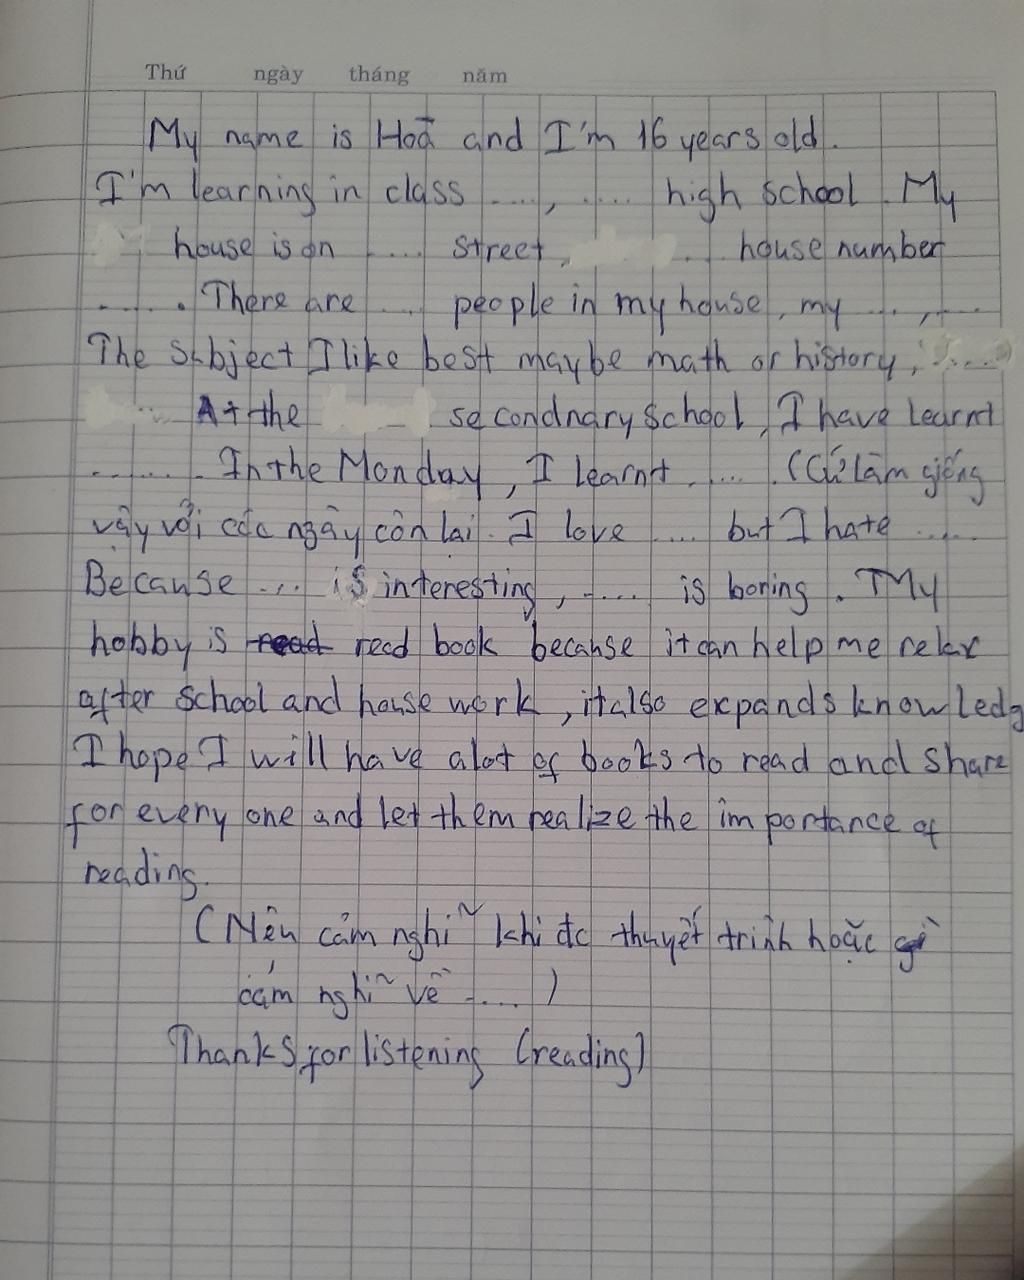 Thứ ngày tháng năm
My name is Hoà and I'm 16 years old.
I'm learning in class ...., .... high school. My
house is on .... street, .. house number
...... . There are .... people in my house, my ...., ....
The subject I like best maybe math or history, ....
... At the secondnary school, I have learnt
....... . In the Monday, I learnt ..... . (Cứ làm giống
vậy với các ngày còn lại. I love .... but I hate .....
Because ... is interesting, ..... is boring. My
hobby is read read book because it can help me relax
after school and house work, it also expands knowledg
I hope I will have alot of books to read and share
for every one and let them realize the importance of
reading.
(Nêu cảm nghĩ khi đc thuyết trình hoặc gì
cảm nghĩ về .....)
Thanks for listening (reading)